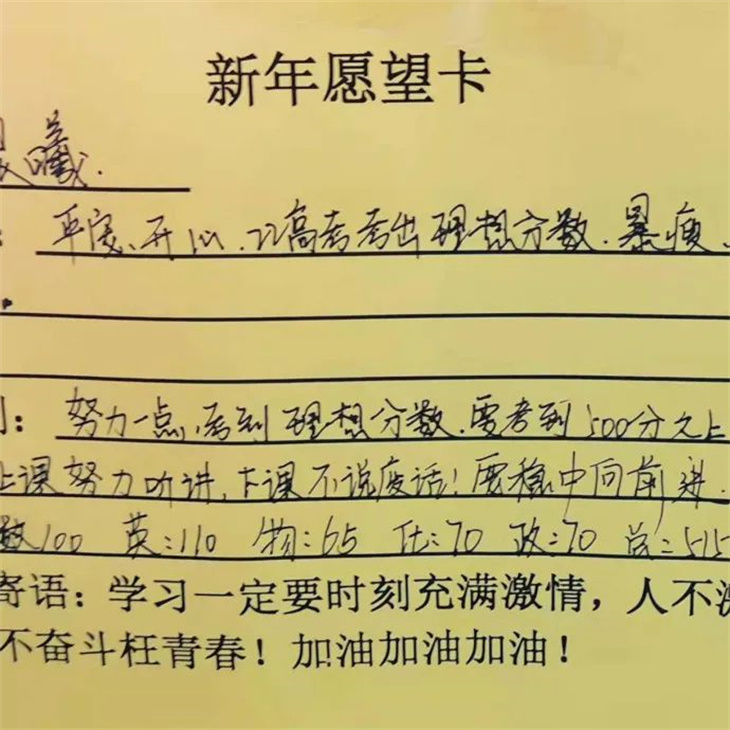 新年愿望卡
曦.
: 平安、开心、以高考考出理想分数.暴瘦、
.
: 努力一点,考到理想分数.要考到500分之上
上课努力听讲,下课不说废话!要稳中向前进.
数100 英:110 物:65 化:70 政:70 总:515
寄语:学习一定要时刻充满激情,人不
不奋斗枉青春!加油加油加油!